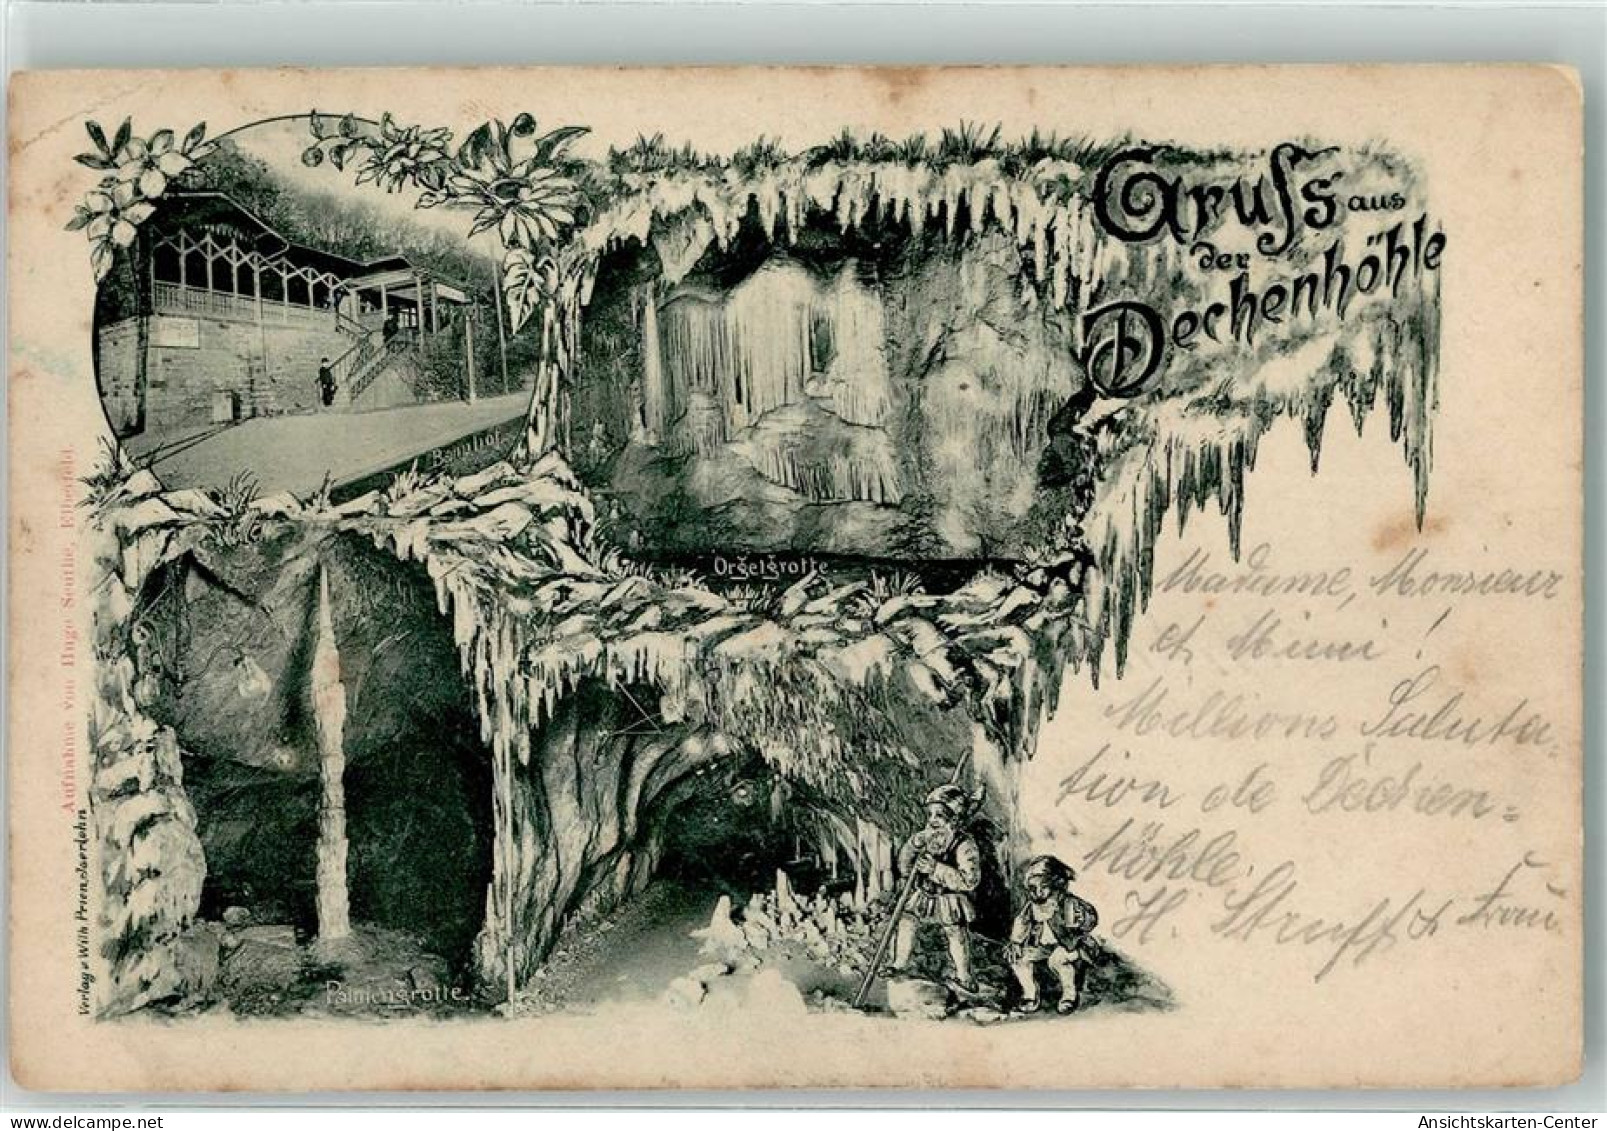 Gruſs aus
der
Dechenhöhle
Bahnhof
Orgelgrotte
Palmengrotte.
Aufnahme von Hugo Sonthe, Elberfeld.
Verlag v Wilh Prien Iserlohn
Madame, Monsieur
et Mimi!
Millions Saluta-
tion de Dechen=
höhle.
H. Struff & Frau
Ansichtskarten-Center